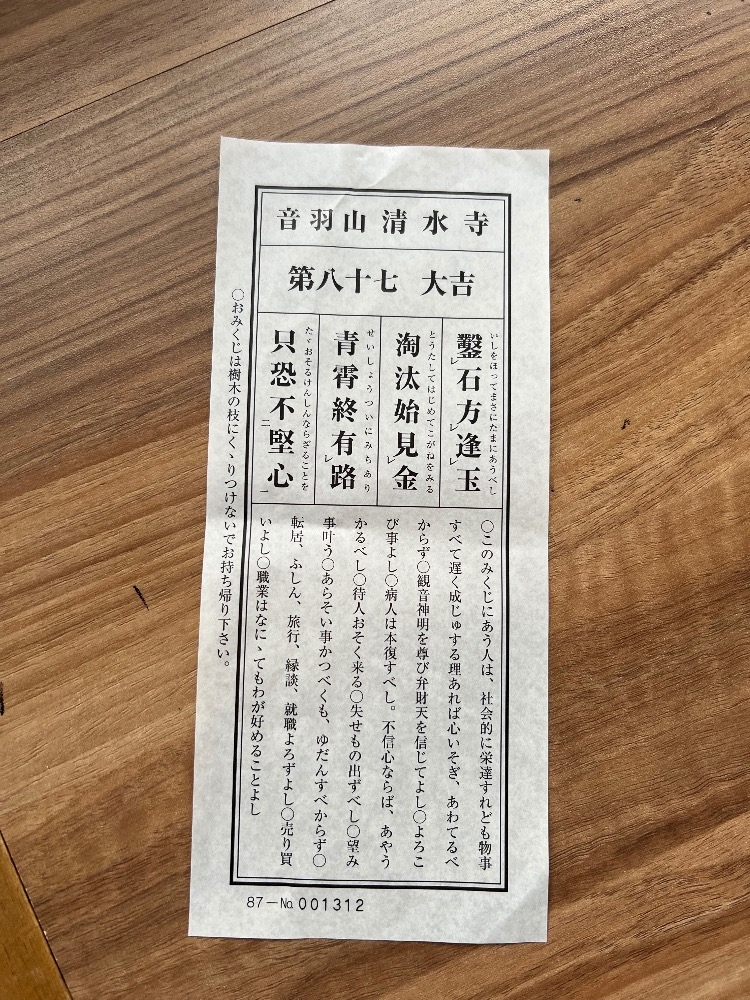 音羽山 清水寺
第八十七 大吉
いしをほってまさにたまにあうべし
鑿レ石方レ逢レ玉
とうたしてはじめてこがねをみる
淘汰始見レ金
せいしょうついにみちあり
青霄終有レ路
たゞおそるけんしんならざることを
只恐不二堅心一
○このみくじにあう人は、社会的に栄達すれども物事
すべて遅く成じゅする理あれば心いそぎ、あわてるべ
からず○観音神明を尊び弁財天を信じてよし○よろこ
び事よし○病人は本復すべし。不信心ならば、あやう
かるべし○待人おそく来る○失せもの出ずべし○望み
事叶う○あらそい事かつべくも、ゆだんすべからず○
転居、ふしん、旅行、縁談、就職よろずよし○売り買
いよし○職業はなにゝてもわが好めることよし
○おみくじは樹木の枝にくゝりつけないでお持ち帰り下さい。
87－No.001312